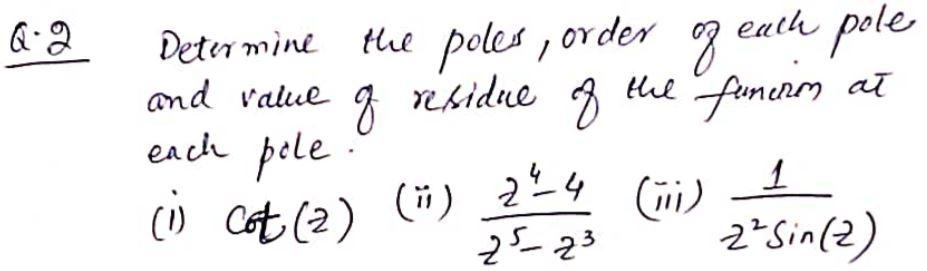 Q.2 Determine the poles, order of each pole
and value of residue of the function at
each pole.
(i) Cot(z) (ii) z⁴-4 / z⁵-z³ (iii) 1 / z² Sin(z)